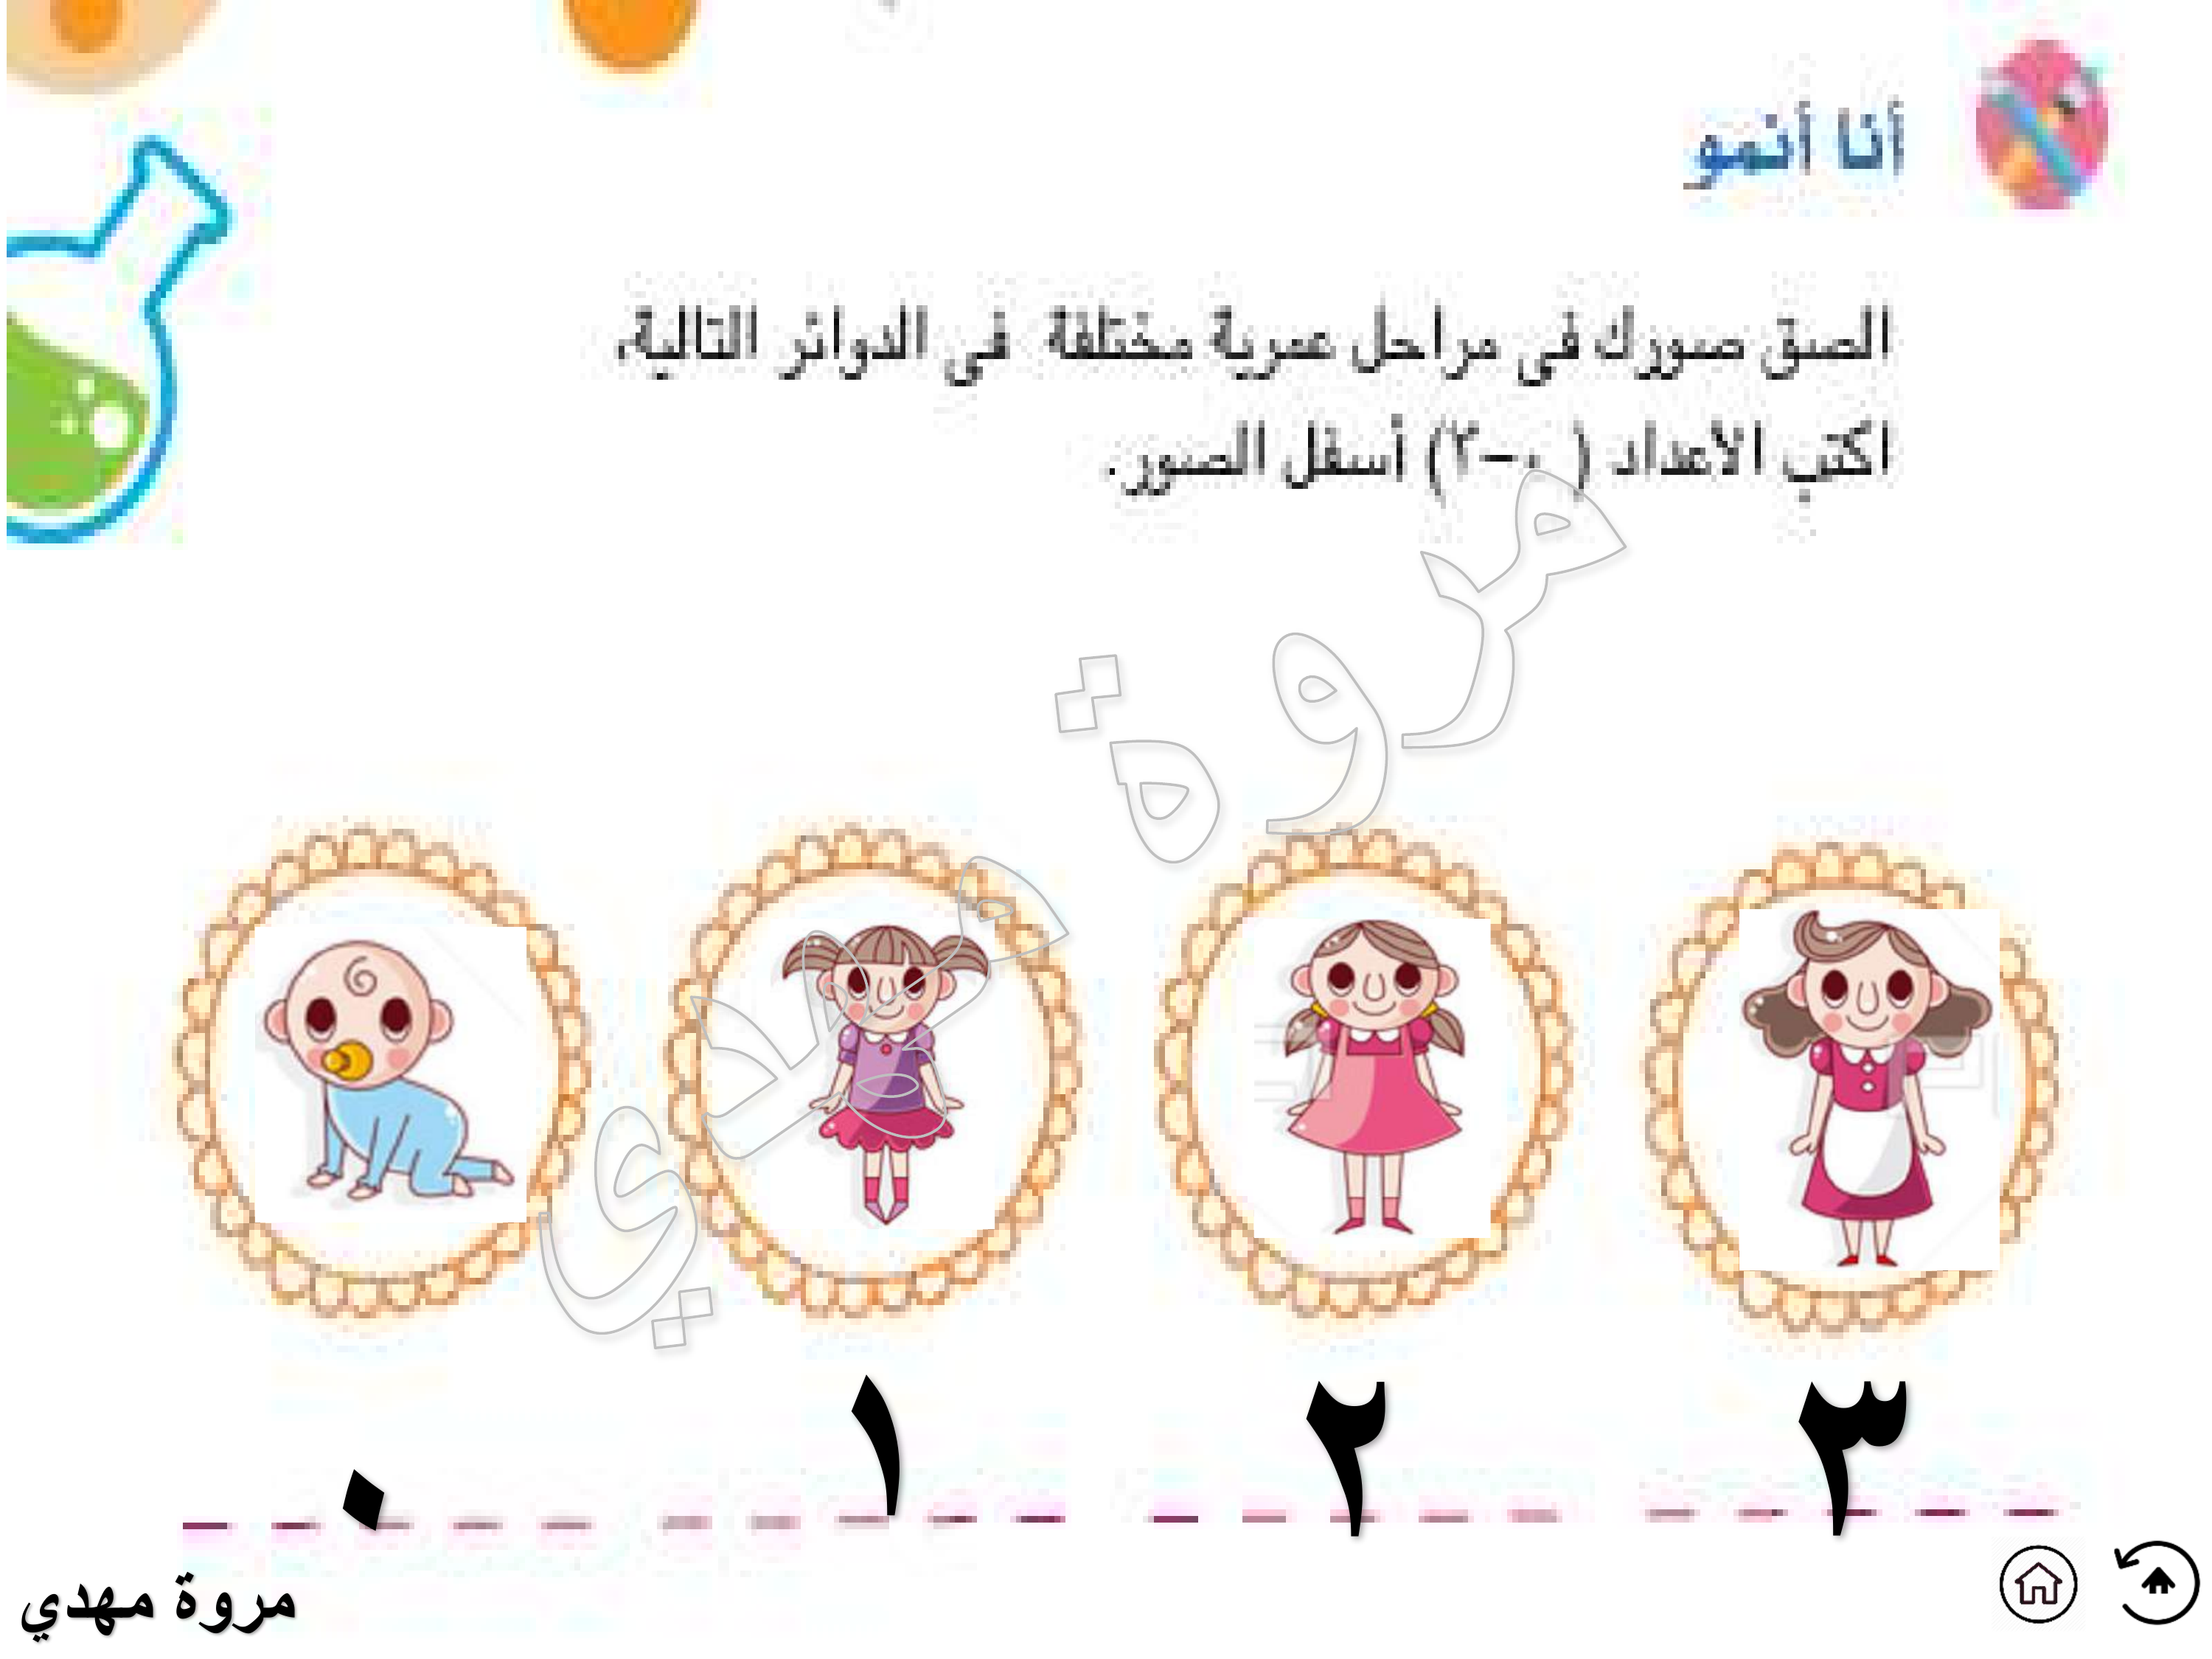 أنا أنمو
الصق صورك في مراحل عمرية مختلفة في الدوائر التالية،
اكتب الأعداد ( ٠-٣) أسفل الصور.
مروة مهدي
٣ ٢ ١ ٠
مروة مهدي